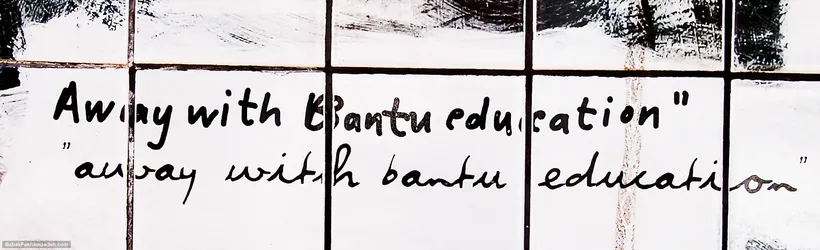 Away with Bantu education"
"away with bantu education"
BabakFakhamzadeh.com